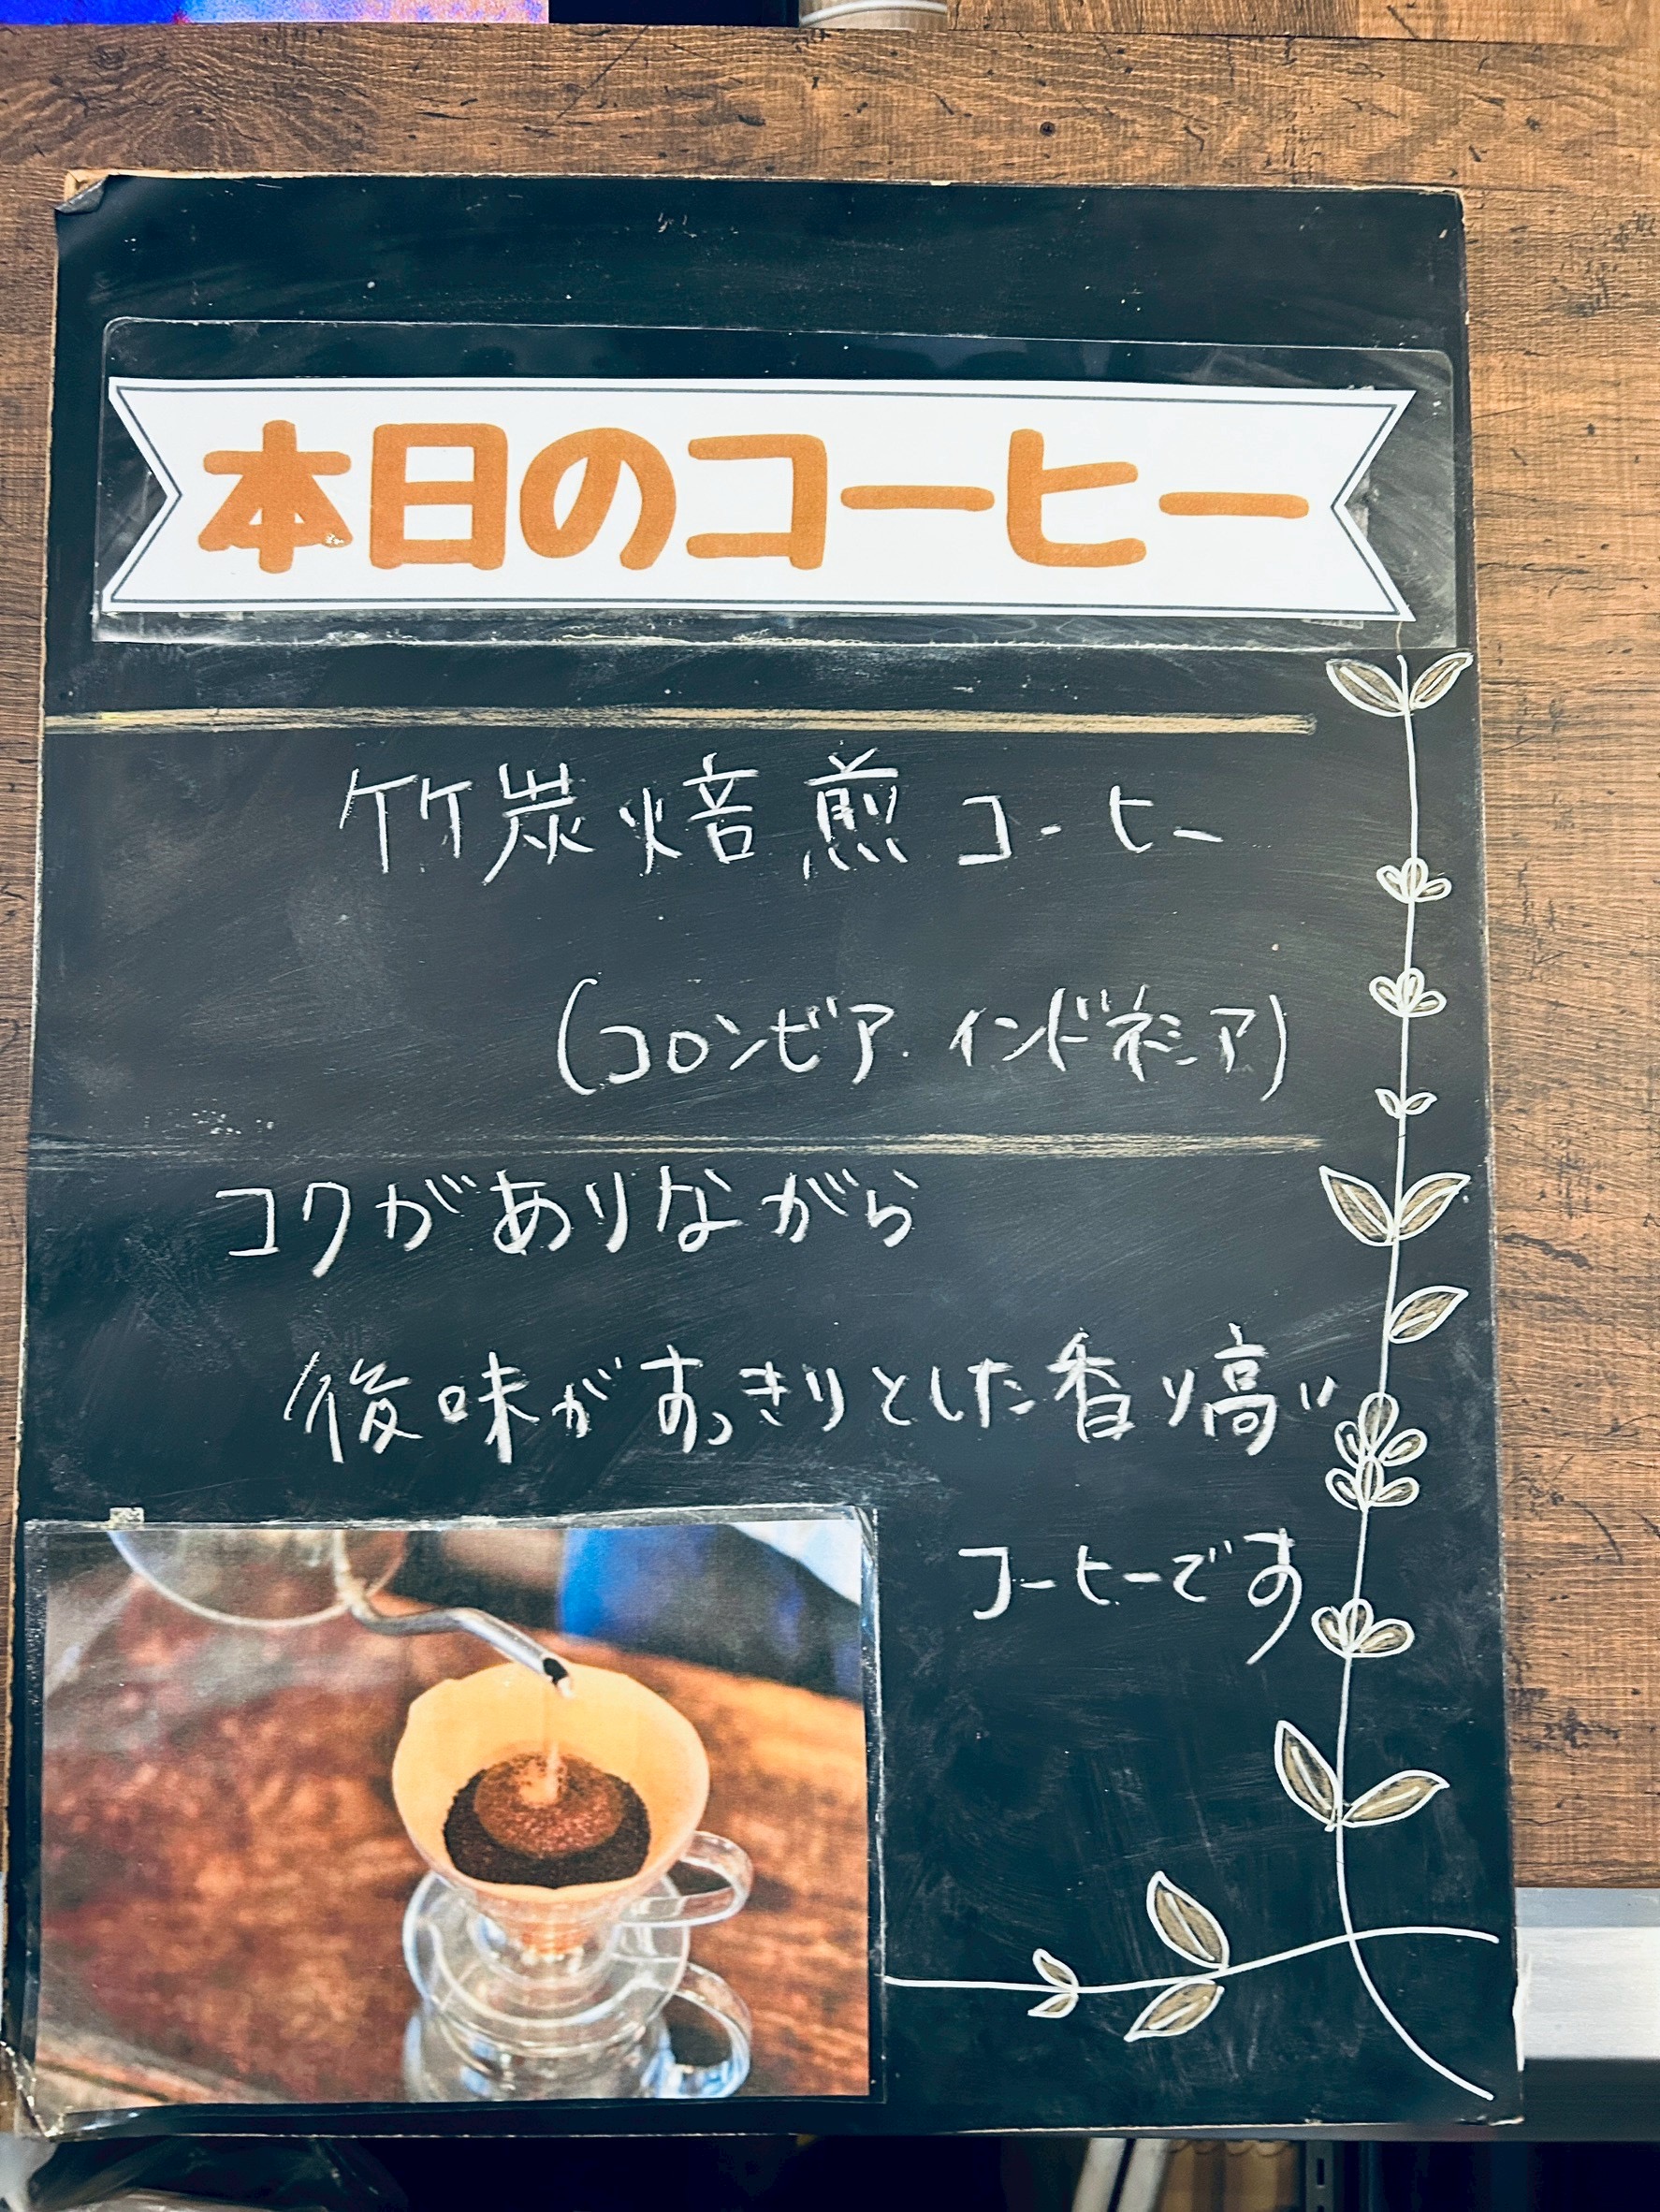 本日のコーヒー
竹炭焙煎コーヒー
(コロンビア.インドネシア)
コクがありながら
後味がすっきりとした香り高い
コーヒーです